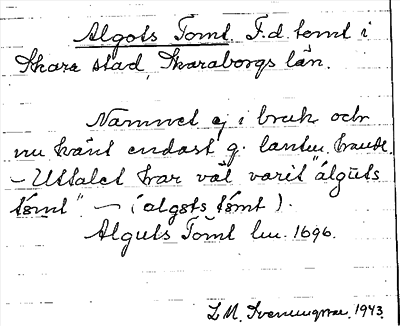 Algots Tomt. F.d. tomt i
Skara stad, Skaraborgs län.
Namnet ej i bruk och
nu känt endast g. lantm. handl.
– Uttalet har väl varit "álguts
tómt" – (algøts tómt).
Alguts Tomt lm. 1696.
L. M. Svenungsson. 1943.